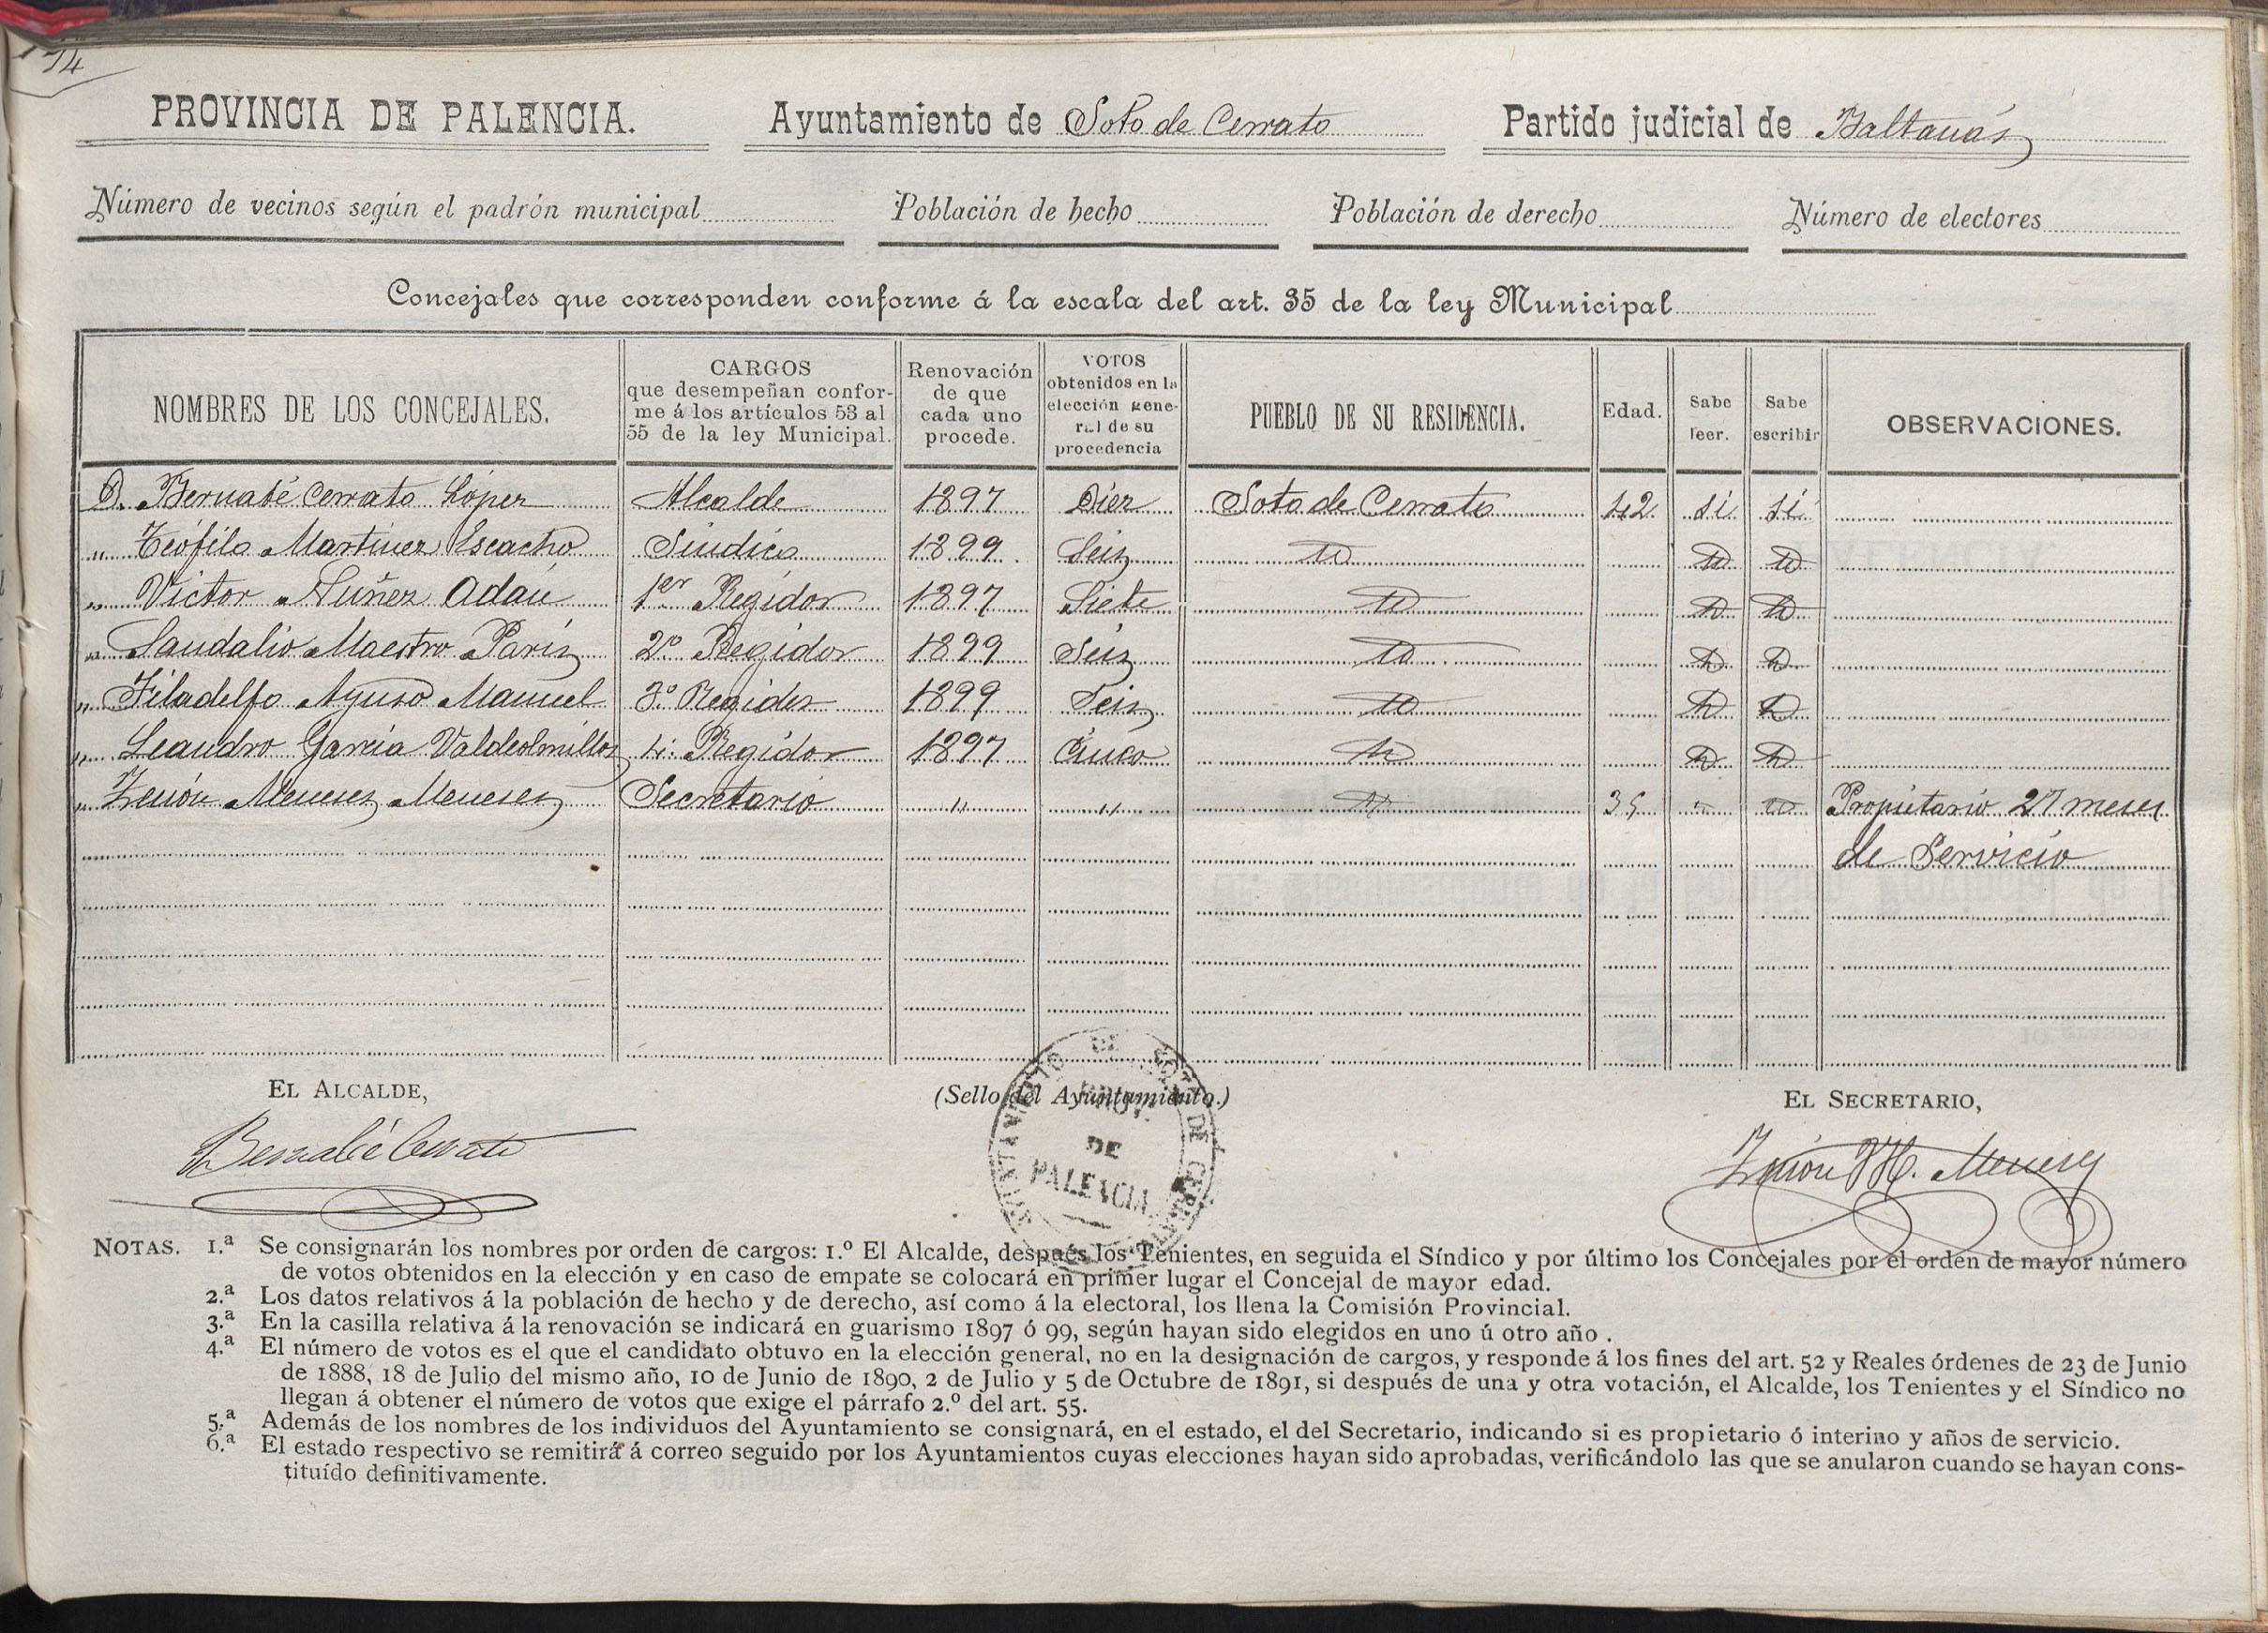 174
PROVINCIA DE PALENCIA. Ayuntamiento de Soto de Cerrato Partido judicial de Baltanás
Número de vecinos según el padrón municipal Población de hecho Población de derecho Número de electores
Concejales que corresponden conforme á la escala del art. 35 de la ley Municipal
NOMBRES DE LOS CONCEJALES. CARGOS que desempeñan confor- me á los artículos 53 al 55 de la ley Municipal. Renovación de que cada uno procede. VOTOS obtenidos en la elección gene- ral de su procedencia PUEBLO DE SU RESIDENCIA. Edad. Sabe leer. Sabe escribir OBSERVACIONES.
D. Bernabé Cerrato López Alcalde 1897 Diez Soto de Cerrato 42 si si
" Teófilo Martinez Escacho Sindico 1899 Seis id id id
" Victor Nuñez Adán 1er Regidor 1897 Siete id id id
" Sandalio Maestro Paris 2º Regidor 1899 Seis id id id
" Filadelfo Ayuso Manuel 3º Regidor 1899 Seis id id id
" Leandro Garcia Valdeolmillos 4º Regidor 1897 Cinco id id id
" Zenón Meneses Meneses Secretario " " id 35 id id Propietario 27 meses
de Servicio
EL ALCALDE, (Sello del Ayuntamiento.) EL SECRETARIO,
AYUNTAMIENTO DE SOTO DE CERRATO
PROV. DE PALENCIA
Bernabé Cerrato Zenón M. Meneses
NOTAS. 1.ª Se consignarán los nombres por orden de cargos: 1.º El Alcalde, después los Tenientes, en seguida el Síndico y por último los Concejales por el orden de mayor número
de votos obtenidos en la elección y en caso de empate se colocará en primer lugar el Concejal de mayor edad.
2.ª Los datos relativos á la población de hecho y de derecho, así como á la electoral, los llena la Comisión Provincial.
3.ª En la casilla relativa á la renovación se indicará en guarismo 1897 ó 99, según hayan sido elegidos en uno ú otro año .
4.ª El número de votos es el que el candidato obtuvo en la elección general, no en la designación de cargos, y responde á los fines del art. 52 y Reales órdenes de 23 de Junio
de 1888, 18 de Julio del mismo año, 10 de Junio de 1890, 2 de Julio y 5 de Octubre de 1891, si después de una y otra votación, el Alcalde, los Tenientes y el Síndico no
llegan á obtener el número de votos que exige el párrafo 2.º del art. 55.
5.ª Además de los nombres de los individuos del Ayuntamiento se consignará, en el estado, el del Secretario, indicando si es propietario ó interino y años de servicio.
6.ª El estado respectivo se remitirá á correo seguido por los Ayuntamientos cuyas elecciones hayan sido aprobadas, verificándolo las que se anularon cuando se hayan cons-
tituído definitivamente.